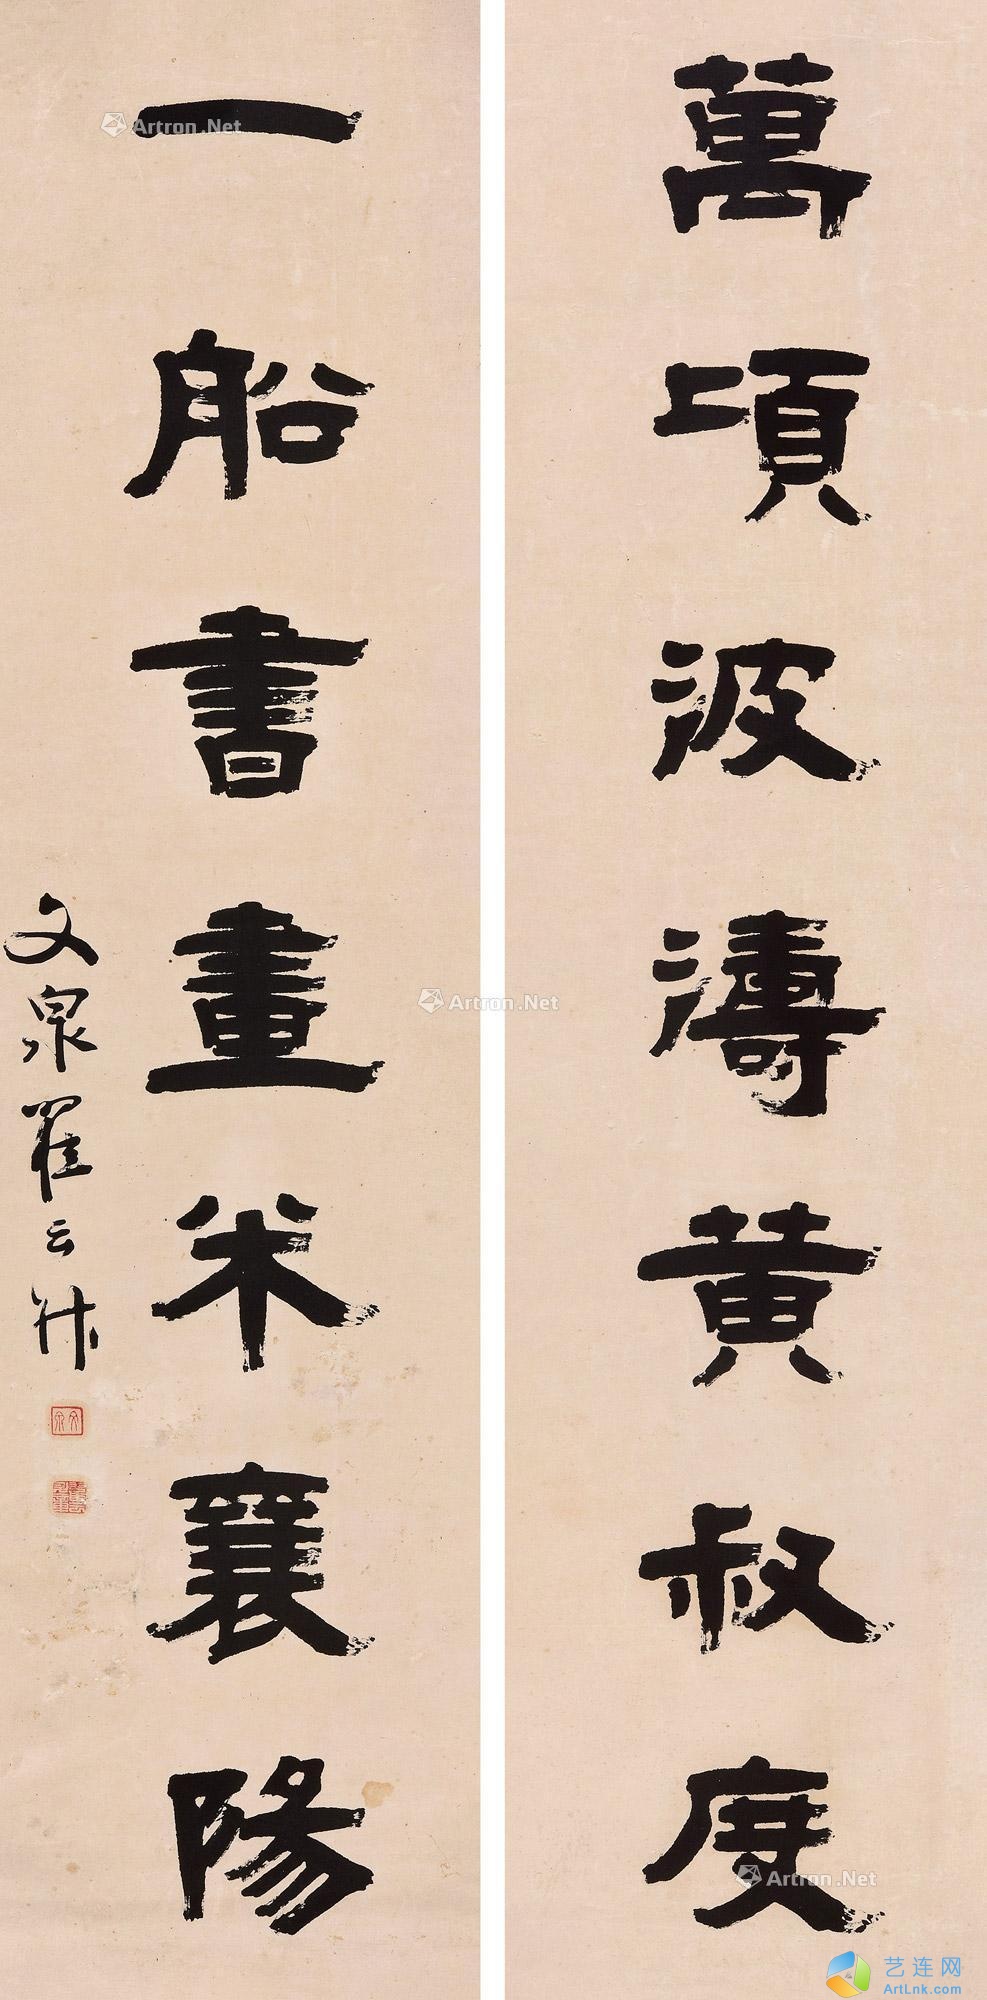 萬頃波濤黄叔度
一船書畫米襄陽
文泉瞿云升
Artron.Net
Artron.Net
Artron.Net
艺连网
ArtLnk.com